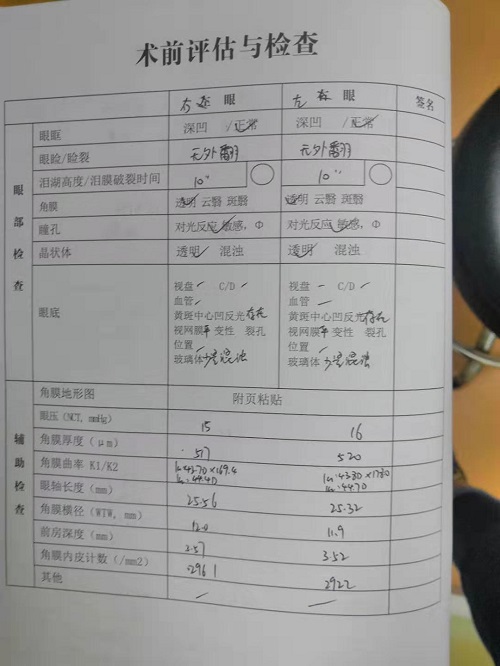 术前评估与检查
右 眼 左 眼 签名
眼部检查
眼眶 深凹 /正常 深凹 /正常
眼睑/睑裂 无外翻 无外翻
泪湖高度/泪膜破裂时间 10" 10"
角膜 透明 云翳 斑翳 透明 云翳 斑翳
瞳孔 对光反应 敏感,Φ 对光反应 敏感,Φ
晶状体 透明 混浊 透明 混浊
眼底
视盘 C/D 视盘 C/D
血管 血管
黄斑中心凹反光存在 黄斑中心凹反光存在
视网膜平 变性 裂孔 视网膜平 变性 裂孔
位置 位置
玻璃体 混浊 玻璃体 混浊
辅助检查
角膜地形图 附页粘贴
眼压(NCT, mmHg) 15 16
角膜厚度(μm) 517 520
角膜曲率 K1/K2 43.70×169.4 43.80×178.0
44.40 44.70
眼轴长度(mm) 25.56 25.32
角膜横径(WTW, mm) 12.0 11.9
前房深度(mm) 2.57 3.52
角膜内皮计数(/mm2) 2961 2922
其他